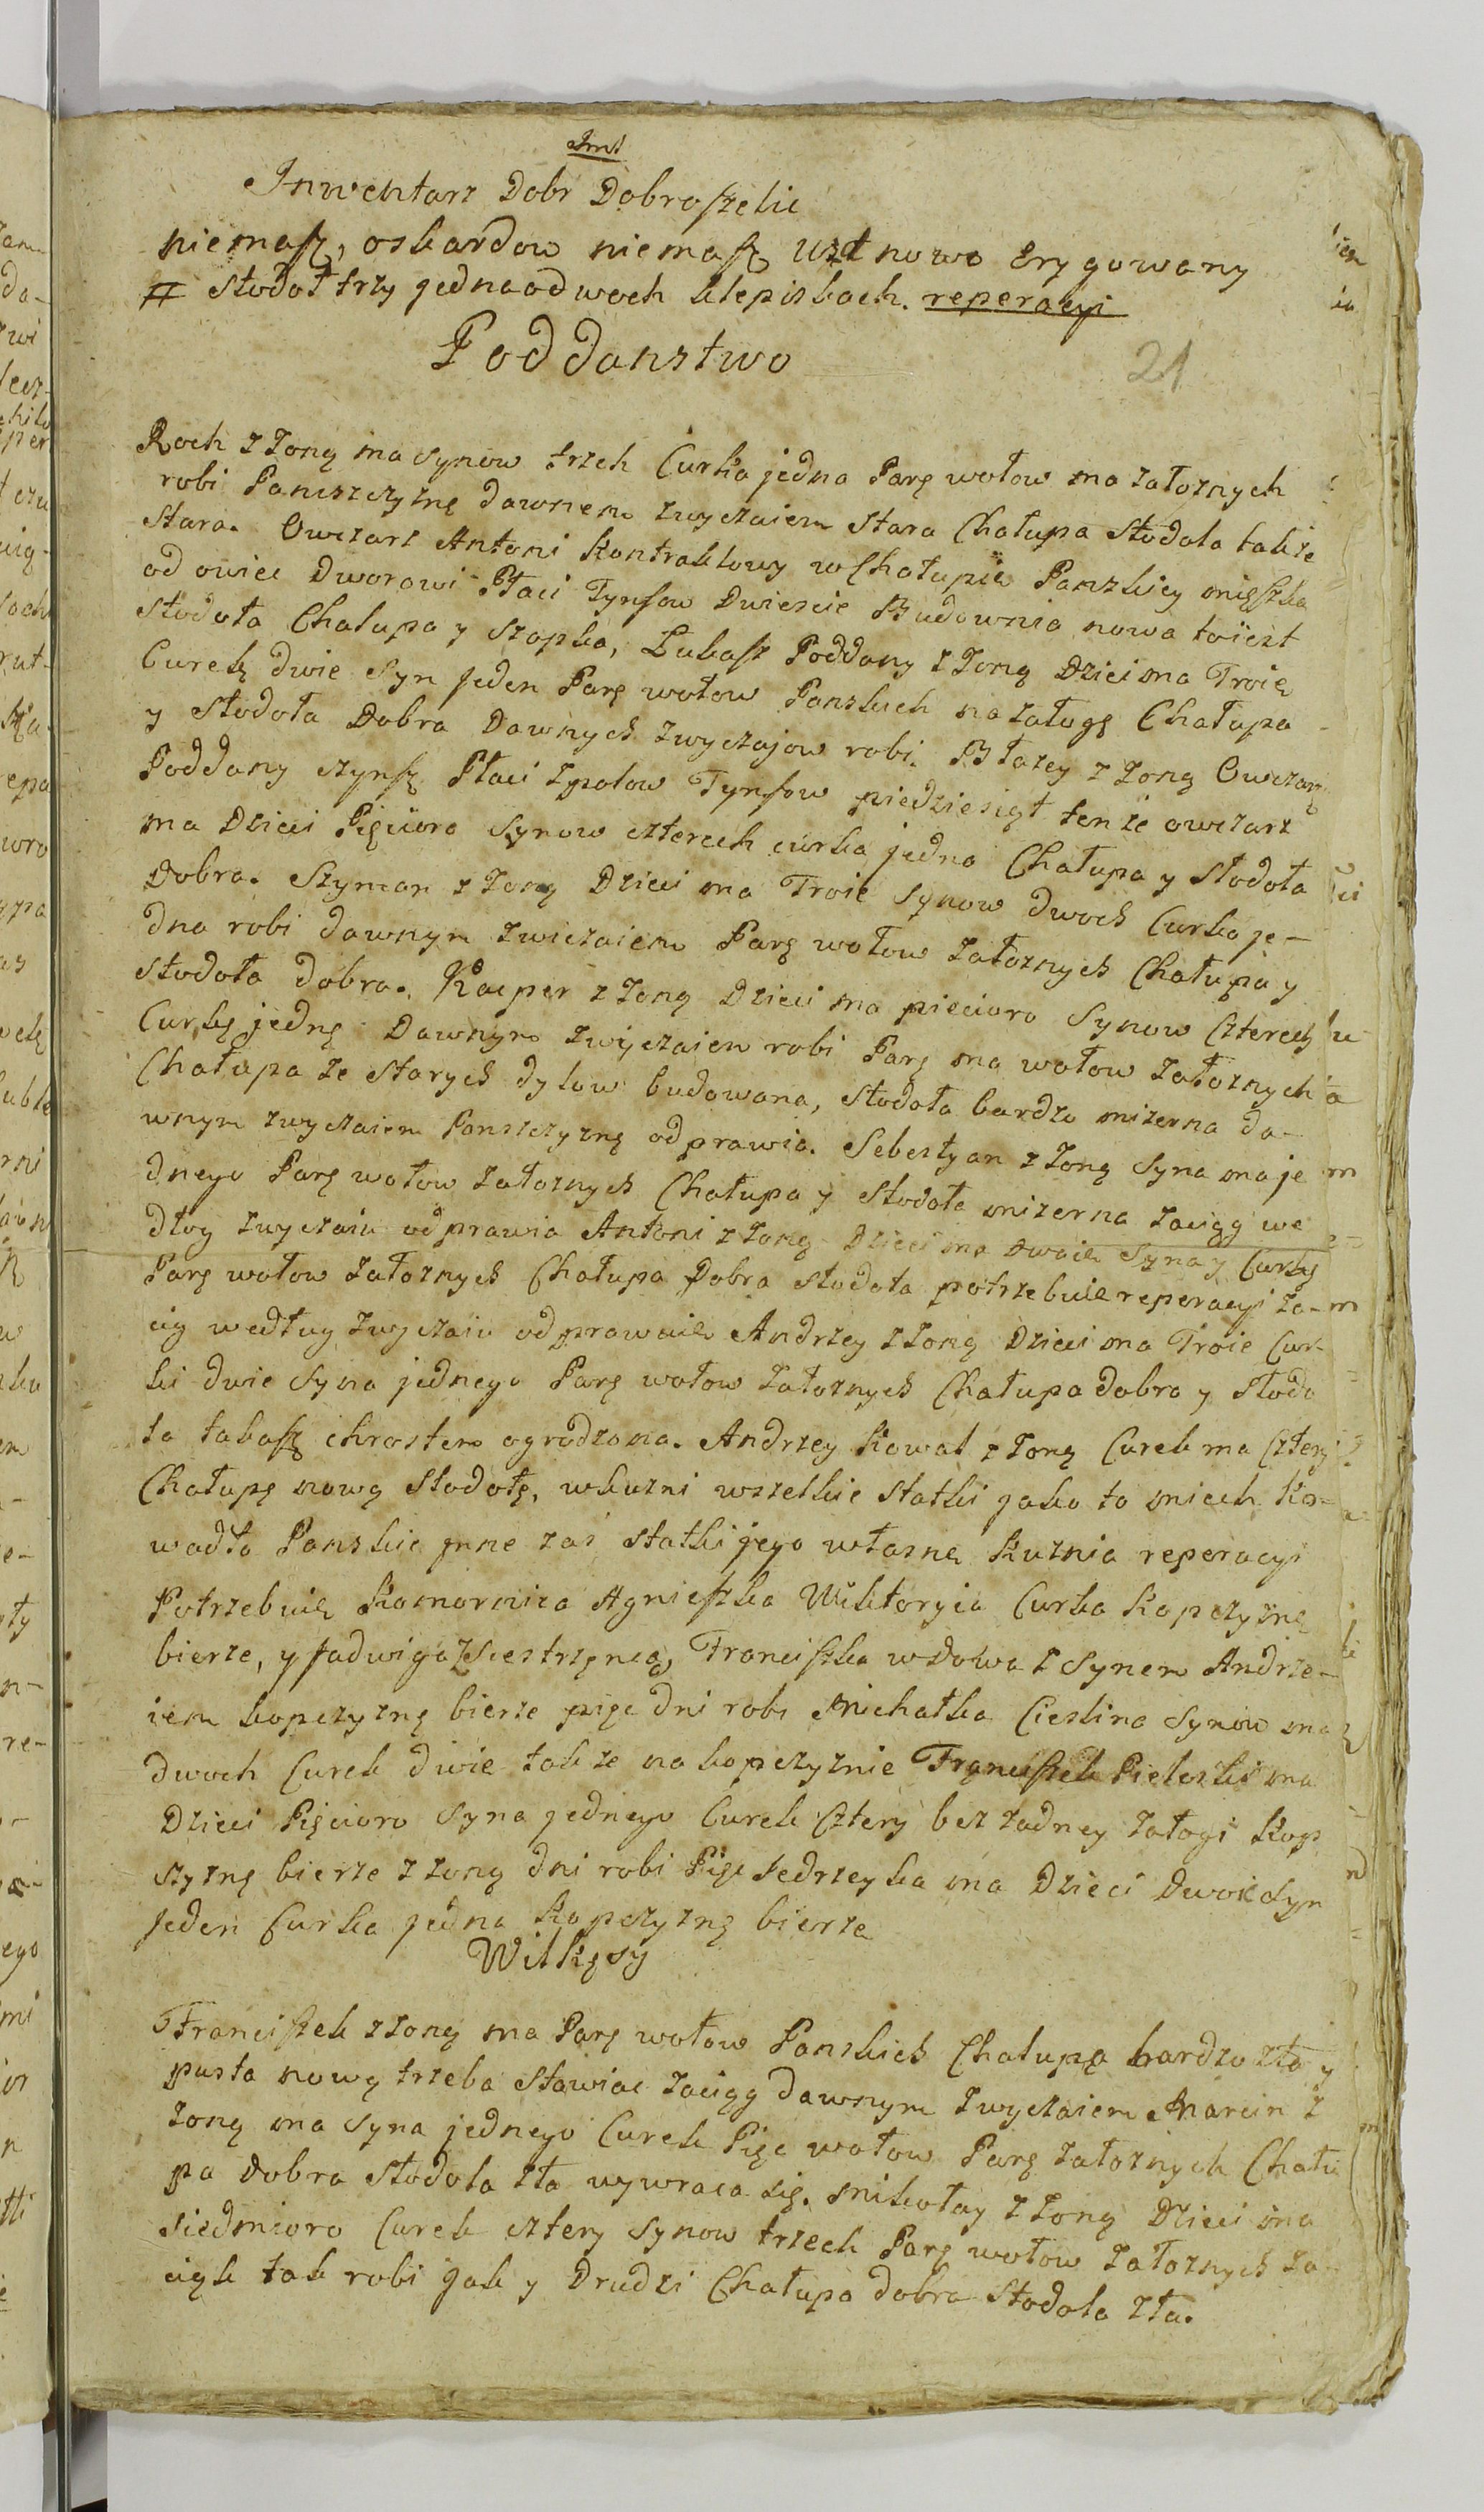 Inwentarz Dobr Dobroszelic
niemasz, oskardow niemasz nowo Erygowany
# Stodoł trzy jedna odwoch klepiskach. reperacyi
Poddanstwo
21
Roch z Zoną ma synow trzch Curka jedna Parę wołow ma załoznych
robi Panszczyznę dawnem zwyczaiem Stara Chałupa Stodoła takze
Stara. Owczarz Antoni Kontraktowy w Chałupie Panskiey mięszka
od owiec Dworowi Płaci Tynfow Dwiescie Budownia nowa toiest
Stodoła Chałupa y szopka, Łukasz Poddany z Zoną Dzieci ma Troie
Curek dwie Syn Jeden Parę wołow Panskich na załogę Chałupa
y Stodoła Dobra Dawnych zwyczajow robi. Błazey z Zoną Owczarz
Poddany czynsz Płaci Tynfow piedziesiąt tenze owczarz
ma Dzieci Pięcioro Synow czterech curka jedna Chałupa y Stodoła
Dobra. Szyman z Zoną Dzieci ma Troie Synow dwoch Curka je-
dna robi dawnym zwiczaiem Parę wołow załoznych Chałupa y
Stodoła dobra. Kacper z Zoną Dzieci ma piecioro Synow Czterech
Curkę jednę Dawnym zwyczaiem robi Parę ma wołow załoznych
Chałupa ze Starych dylow budowana, Stodoła bardzo mizerna da-
wnym zwyczaiem Panszczyznę odprawia. Sebestyan z Zoną Syna ma je
dnego Parę wołow załoznych Chałupa y Stodoła mizerna zaciąg we
dlog zwyczaiu odprawia Antoni z Zoną Dzieci ma Dwoie Syna y Curkę
Parę wołow załoznych Chałupa Dobra Stodoła potrzebuie reperacyi za-
cig według zwyczaiu odprawuie Andrzey z Zoną Dzieci ma Troie Cur-
ki dwie Syna jednego Parę wołow załoznych Chałupa dobra y Stodo
ła takasz chrostem ogrodzona. Andrzey Kowal z Zoną Curek ma Cztery
Chałupę nową Stodołę, w kuzni wszelkie Statki jako to miech Ko-
wadło Panskie jnne zaś Statki jego własne Kuznia reperacyi
Potrzebuie Komornica Agnieszka Wiktoryia Curka Kopczyznę
bierze, y Jadwiga z Siestrzęncą, Franciszka wdowa z Synem Andrze-
iem kopczyznę bierze pięc dni robi Michałka Cieslina Synow ma
dwoch Curek dwie takze na kopczyznie Franciszek Pieleski ma
Dzieci Pięcioro Syna jednego Curek Cztery bez zadney załogi Kop
szyznę bierze z zoną dni robi Pięc Jedrzeyka ma Dzieci Dwoie Syn
Jeden Curka jedna Kopczyznę bierze
Wilkęsy
Franciszek z Zoną ma Parę wołow Panskich Chałupa bardzo zła y
pusta nowę trzeba Stawiac zaciąg dawnym zwyczaiem Marcin z
Zoną ma Syna jednego Curek Pięc wołow Parę załoznych Chału
pa Dobra Stodoła zła wywraca się. Mikołay z Zoną Dzieci ma
siedmioro Curek cztery Synow trzech Parę wołow załoznych za-
ciąk tak robi jak y Drudzi Chałupa dobra Stodoła zła.